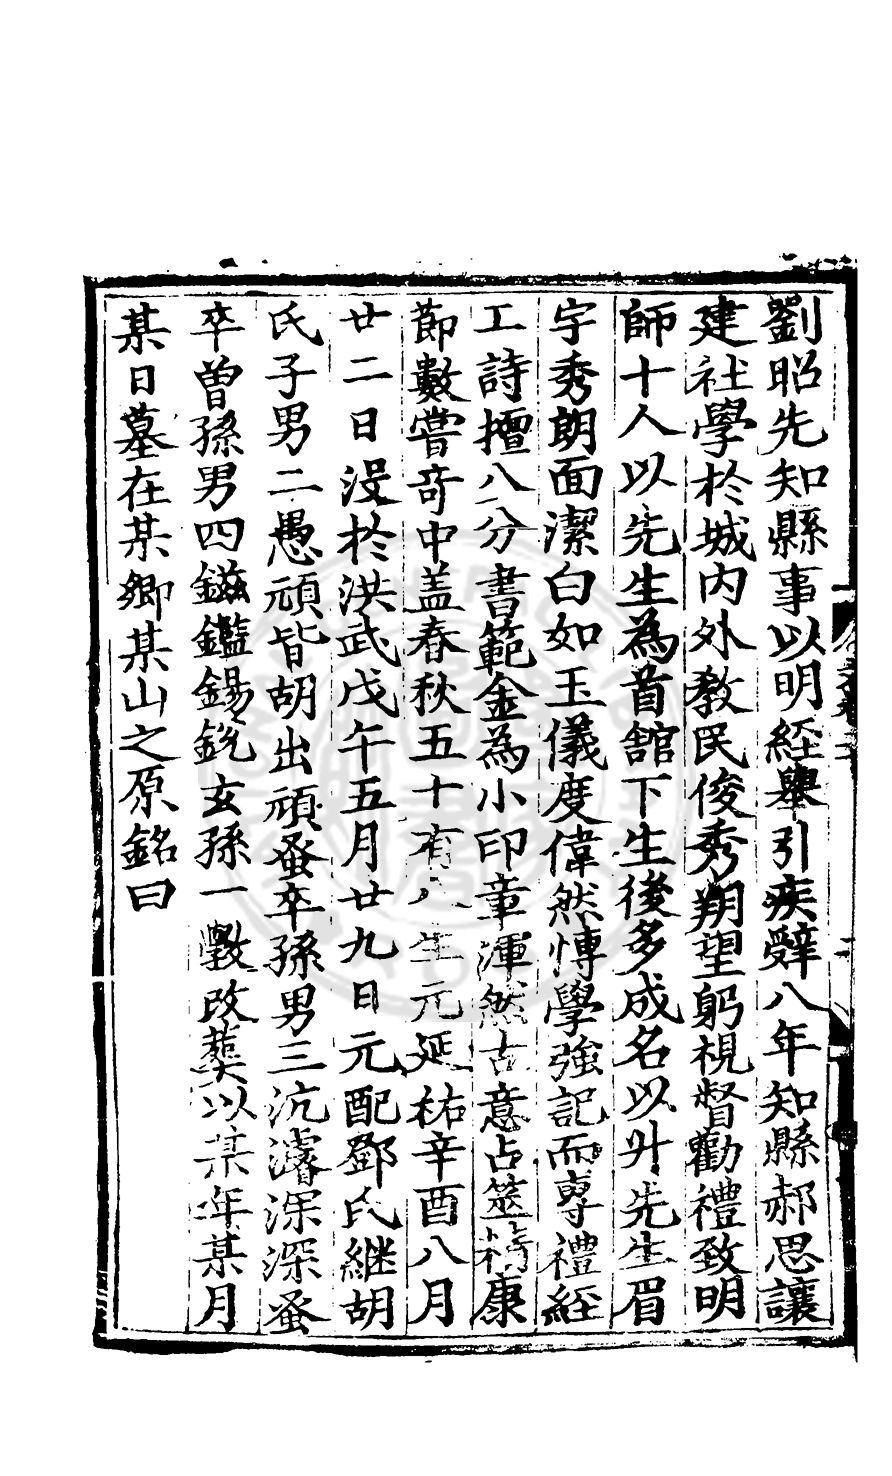 劉昭先知縣事以明經舉引疾辭八年知縣郝思讓
建社學於城內外教民俊秀朔望躬視督勸禮致明
師十人以先生為首舘下生後多成名以卅先生眉
宇秀朗面潔白如玉儀度偉然慱學強記而專禮經
工詩擅八分書範金為小印章渾然古意占筮稱康
節數嘗奇中盖春秋五十有八生元延祐辛酉八月
廿二日沒於洪武戊午五月廿九日元配鄧氏継胡
氏子男二愚頑皆胡出頑蚤卒孫男三沆濬深深蚤
卒曾孫男四鎡鑑錫銳玄孫一斅改葬以某年某月
某日墓在某鄉某山之原銘曰